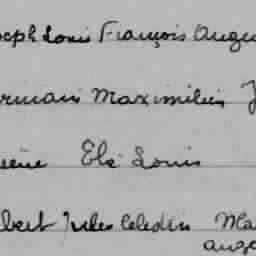 oseph Louis François Augu
ermain Maximilien J
Elie Louis
bert Jules Celestin Ma
ange